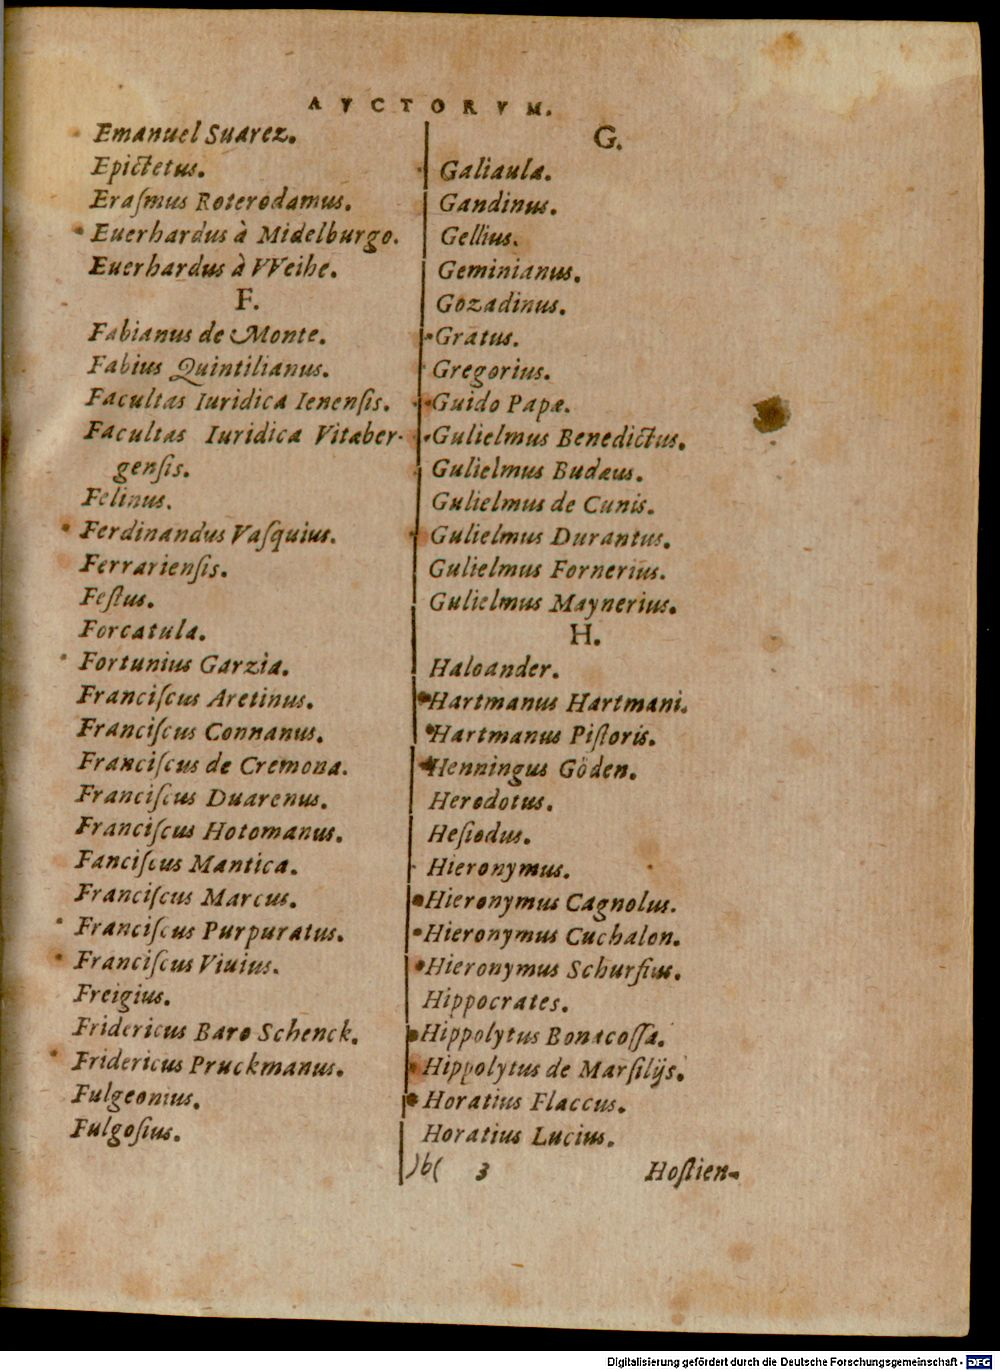 AVCTORVM.
Emanuel Suarez.
Epictetus.
Eraſmus Roterodamus.
Euerhardus à Midelburgo.
Euerhardus à VVeihe.
F.
Fabianus de Monte.
Fabius Quintilianus.
Facultas Iuridica Ienenſis.
Facultas Iuridica Vitaber-
genſis.
Felinus.
Ferdinandus Vaſquius.
Ferrarienſis.
Feſtus.
Forcatula.
Fortunius Garzia.
Franciſcus Aretinus.
Franciſcus Connanus.
Franciſcus de Cremona.
Franciſcus Duarenus.
Franciſcus Hotomanus.
Fanciſcus Mantica.
Franciſcus Marcus.
Franciſcus Purpuratus.
Franciſcus Viuius.
Freigius.
Fridericus Baro Schenck.
Fridericus Pruckmanus.
Fulgeonius.
Fulgoſius.
G.
Galiaula.
Gandinus.
Gellius.
Geminianus.
Gozadinus.
Gratus.
Gregorius.
Guido Papæ.
Gulielmus Benedictus.
Gulielmus Budæus.
Gulielmus de Cunis.
Gulielmus Durantus.
Gulielmus Fornerius.
Gulielmus Maynerius.
H.
Haloander.
Hartmanus Hartmani.
Hartmanus Piſtoris.
Henningus Göden.
Herodotus.
Heſiodus.
Hieronymus.
Hieronymus Cagnolus.
Hieronymus Cuchalon.
Hieronymus Schurfius.
Hippocrates.
Hippolytus Bonacoſſa.
Hippolytus de Marſilijs.
Horatius Flaccus.
Horatius Lucius.
)b( 3 Hoſtien-
Digitalisierung gefördert durch die Deutsche Forschungsgemeinschaft - DFG